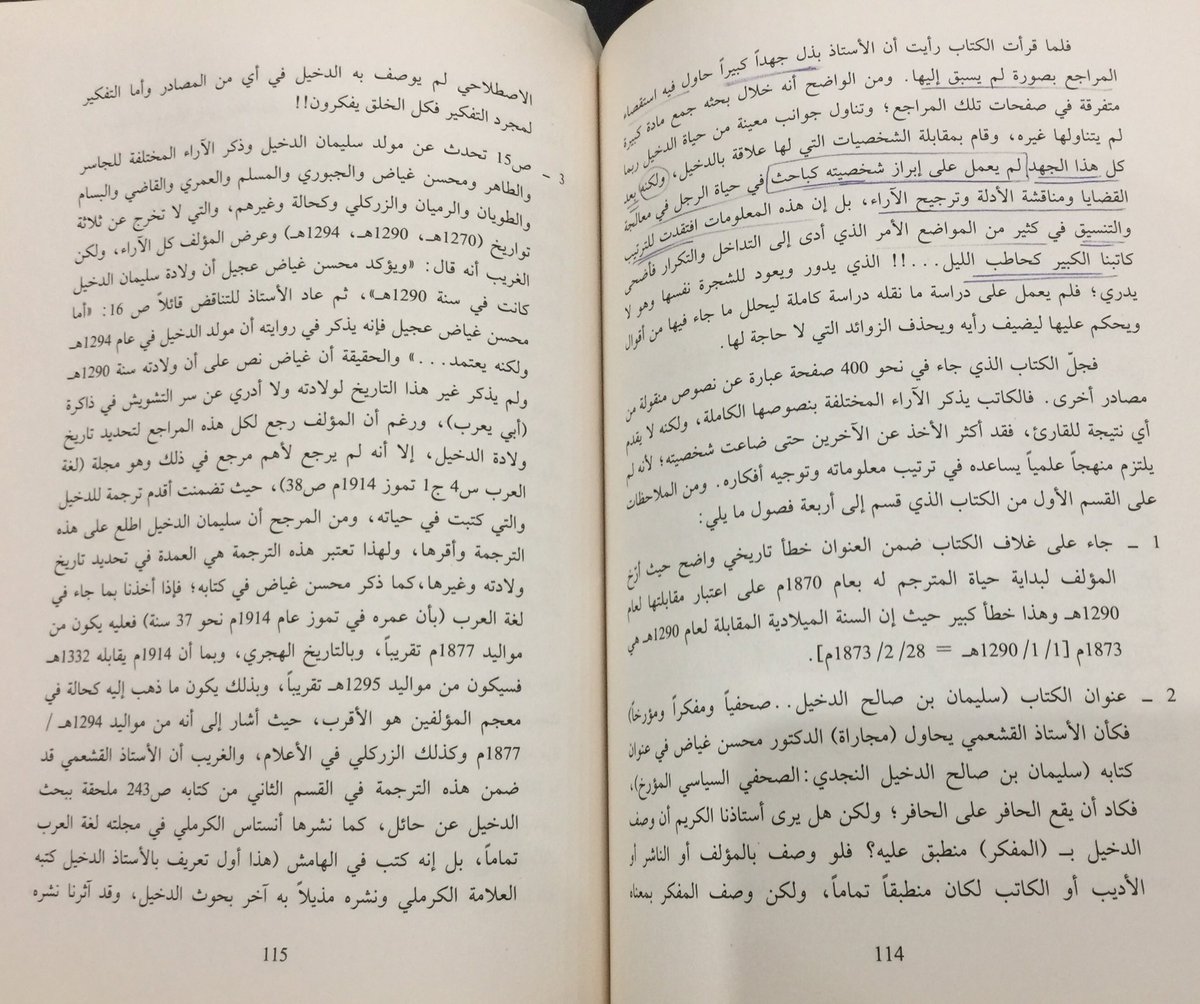 فلما قرأت الكتاب رأيت أن الأستاذ بذل جهداً كبيراً حاول فيه استقصاء
المراجع بصورة لم يسبق إليها. ومن الواضح أنه خلال بحثه جمع مادة كبيرة
متفرقة في صفحات تلك المراجع؛ وتناول جوانب معينة من حياة الدخيل ربما
لم يتناولها غيره، وقام بمقابلة الشخصيات التي لها علاقة بالدخيل، ولكنه بعد
كل هذا الجهد لم يعمل على إبراز شخصيته كباحث في حياة الرجل في معالجة
القضايا ومناقشة الأدلة وترجيح الآراء، بل إن هذه المعلومات افتقدت للترتيب
والتنسيق في كثير من المواضع الأمر الذي أدى إلى التداخل والتكرار فأضحى
كاتبنا الكبير كحاطب الليل...!! الذي يدور ويعود للشجرة نفسها وهو لا
يدري؛ فلم يعمل على دراسة ما نقله دراسة كاملة ليحلل ما جاء فيها من أقوال
ويحكم عليها ليضيف رأيه ويحذف الزوائد التي لا حاجة لها.
فجلّ الكتاب الذي جاء في نحو 400 صفحة عبارة عن نصوص منقولة من
مصادر أخرى. فالكاتب يذكر الآراء المختلفة بنصوصها الكاملة، ولكنه لا يقدم
أي نتيجة للقارئ، فقد أكثر الأخذ عن الآخرين حتى ضاعت شخصيته؛ لأنه لم
يلتزم منهجاً علمياً يساعده في ترتيب معلوماته وتوجيه أفكاره. ومن الملاحظات
على القسم الأول من الكتاب الذي قسم إلى أربعة فصول ما يلي:
1 ــ جاء على غلاف الكتاب ضمن العنوان خطأ تاريخي واضح حيث أرّخ
المؤلف لبداية حياة المترجم له بعام 1870م على اعتبار مقابلتها لعام
1290هـ وهذا خطأ كبير حيث إن السنة الميلادية المقابلة لعام 1290هـ هي
1873م [1/ 1/ 1290هـ = 28/ 2/ 1873م].
2 ــ عنوان الكتاب (سليمان بن صالح الدخيل.. صحفياً ومفكراً ومؤرخاً)
فكأن الأستاذ القشعمي يحاول (مجاراة) الدكتور محسن غياض في عنوان
كتابه (سليمان بن صالح الدخيل النجدي: الصحفي السياسي المؤرخ)،
فكاد أن يقع الحافر على الحافر؛ ولكن هل يرى أستاذنا الكريم أن وصف
الدخيل بــ (المفكر) منطبق عليه؟ فلو وصف بالمؤلف أو الناشر أو
الأديب أو الكاتب لكان منطبقاً تماماً، ولكن وصف المفكر بمعناه
114
الاصطلاحي لم يوصف به الدخيل في أي من المصادر وأما التفكير
لمجرد التفكير فكل الخلق يفكرون!!
3 ــ ص15 تحدث عن مولد سليمان الدخيل وذكر الآراء المختلفة للجاسر
والطاهر ومحسن غياض والجبوري والمسلم والعمري والقاضي والبسام
والطويان والرميان والزركلي وكحالة وغيرهم، والتي لا تخرج عن ثلاثة
تواريخ (1270هـ، 1290هـ، 1294هـ) وعرض المؤلف كل الآراء، ولكن
الغريب أنه قال: «ويؤكد محسن غياض عجيل أن ولادة سليمان الدخيل
كانت في سنة 1290هـ»، ثم عاد الأستاذ للتناقض قائلاً ص 16: «أما
محسن غياض عجيل فإنه يذكر في روايته أن مولد الدخيل في عام 1294هـ
ولكنه يعتمد...» والحقيقة أن غياض نص على أن ولادته سنة 1290هـ
ولم يذكر غير هذا التاريخ لولادته ولا أدري عن سر التشويش في ذاكرة
(أبي يعرب)، ورغم أن المؤلف رجع لكل هذه المراجع لتحديد تاريخ
ولادة الدخيل، إلا أنه لم يرجع لأهم مرجع في ذلك وهو مجلة (لغة
العرب س4 ج1 تموز 1914م ص38)، حيث تضمنت أقدم ترجمة للدخيل
والتي كتبت في حياته، ومن المرجح أن سليمان الدخيل اطلع على هذه
الترجمة وأقرها، ولهذا تعتبر هذه الترجمة هي العمدة في تحديد تاريخ
ولادته وغيرها،كما ذكر محسن غياض في كتابه؛ فإذا أخذنا بما جاء في
لغة العرب (بأن عمره في تموز عام 1914م نحو 37 سنة) فعليه يكون من
مواليد 1877م تقريباً، وبالتاريخ الهجري، وبما أن 1914م يقابله 1332هـ
فسيكون من مواليد 1295هـ تقريباً، وبذلك يكون ما ذهب إليه كحالة في
معجم المؤلفين هو الأقرب، حيث أشار إلى أنه من مواليد 1294هـ/
1877م وكذلك الزركلي في الأعلام، والغريب أن الأستاذ القشعمي قد
ضمن هذه الترجمة في القسم الثاني من كتابه ص243 ملحقة ببحث
الدخيل عن حائل، كما نشرها أنستاس الكرملي في مجلته لغة العرب
تماماً، بل إنه كتب في الهامش (هذا أول تعريف بالأستاذ الدخيل كتبه
العلامة الكرملي ونشره مذيلاً به آخر بحوث الدخيل، وقد آثرنا نشره
115